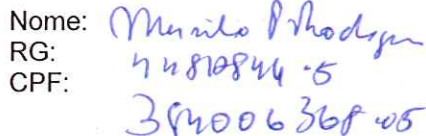 Nome: Murilo P Rhodign
RG: 44810844-5
CPF: 384006368-05